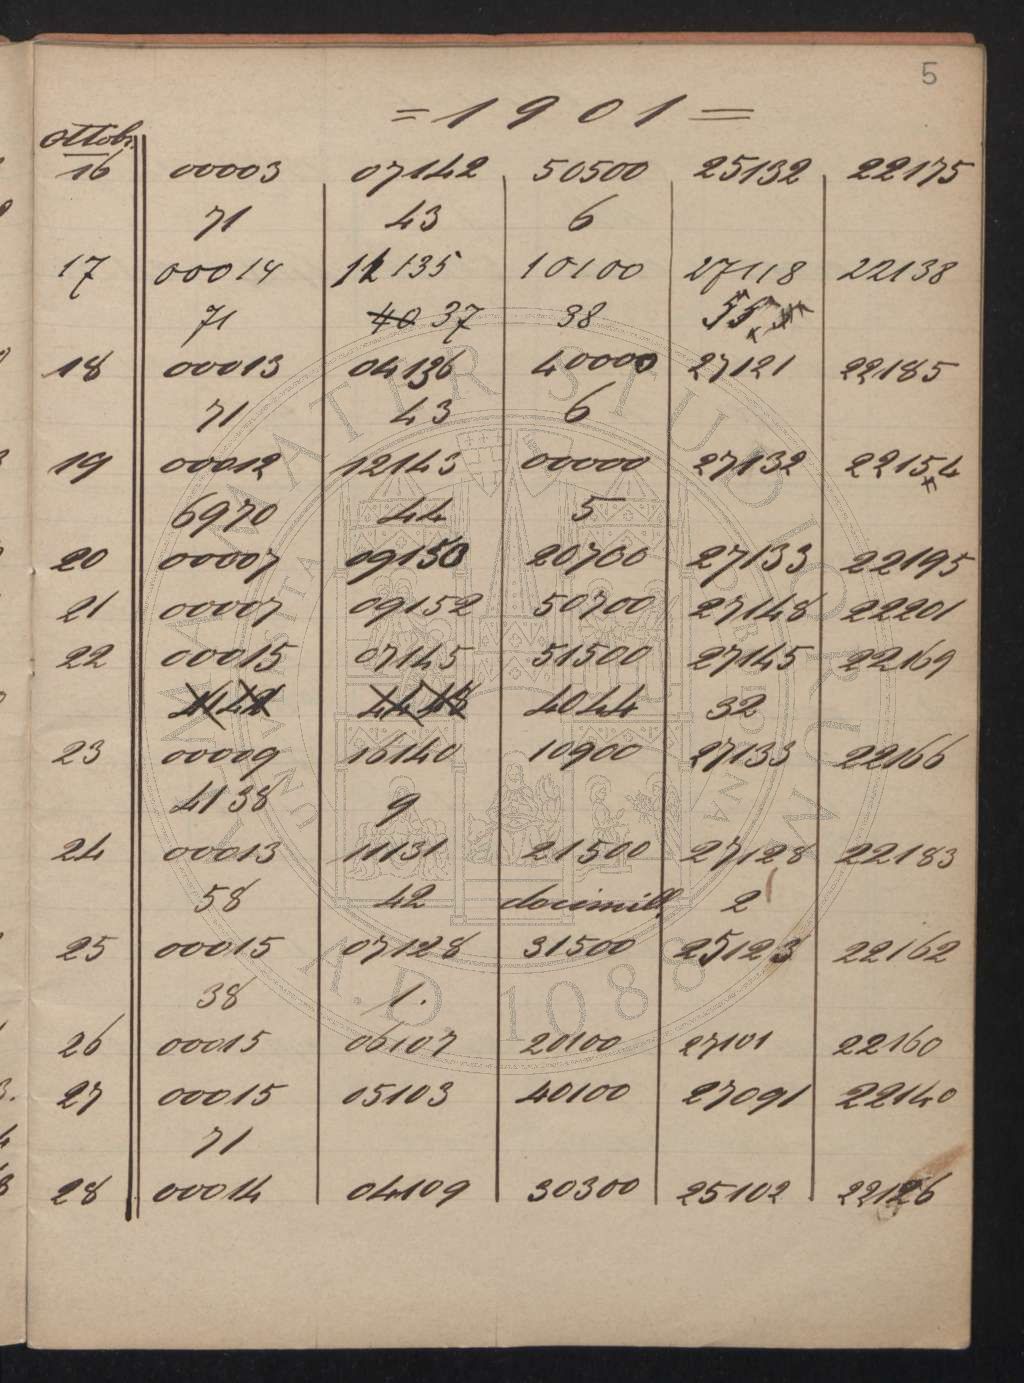 5
= 1901 =
ottob.
16 00003 07142 50500 25132 22175
71 43 6
17 00014 12135 10100 27118 22138
71 40 37 38 55
18 00013 04136 40000 27121 22185
71 43 6
19 00012 12143 00000 27132 22154
6970 44 5
20 00007 09150 20700 27133 22195
21 00007 09152 50700 27148 22201
22 00015 07145 51500 27145 22169
4044 32
23 00009 16140 10900 27133 22166
4138 9
24 00013 11131 21500 27128 22183
58 42 docimill. 2
25 00015 07128 31500 25123 22162
38 1.
26 00015 06107 20100 27101 22160
27 00015 05103 40100 27091 22140
71
28 00014 04109 30300 25102 22126
ALMA MATER STUDIORUM
A.D. 1088